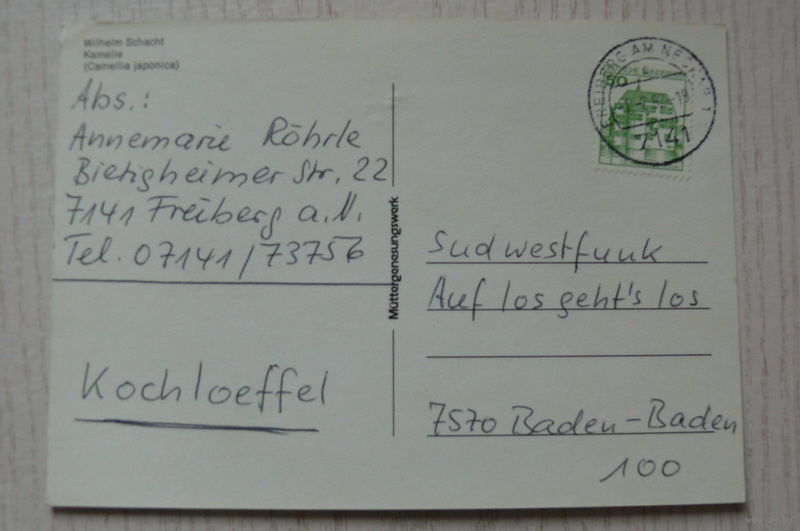 Wilhelm Schacht
Kamelie
(Camellia japonica)
Abs.:
Annemarie Röhrle
Bietigheimer Str. 22
7141 Freiberg a.N.
Tel. 07141/73756
Kochloeffel
Müttergenesungswerk
FREIBERG AM NECKAR 1
7141
50
Südwestfunk
Auf los geht's los
7570 Baden-Baden
100